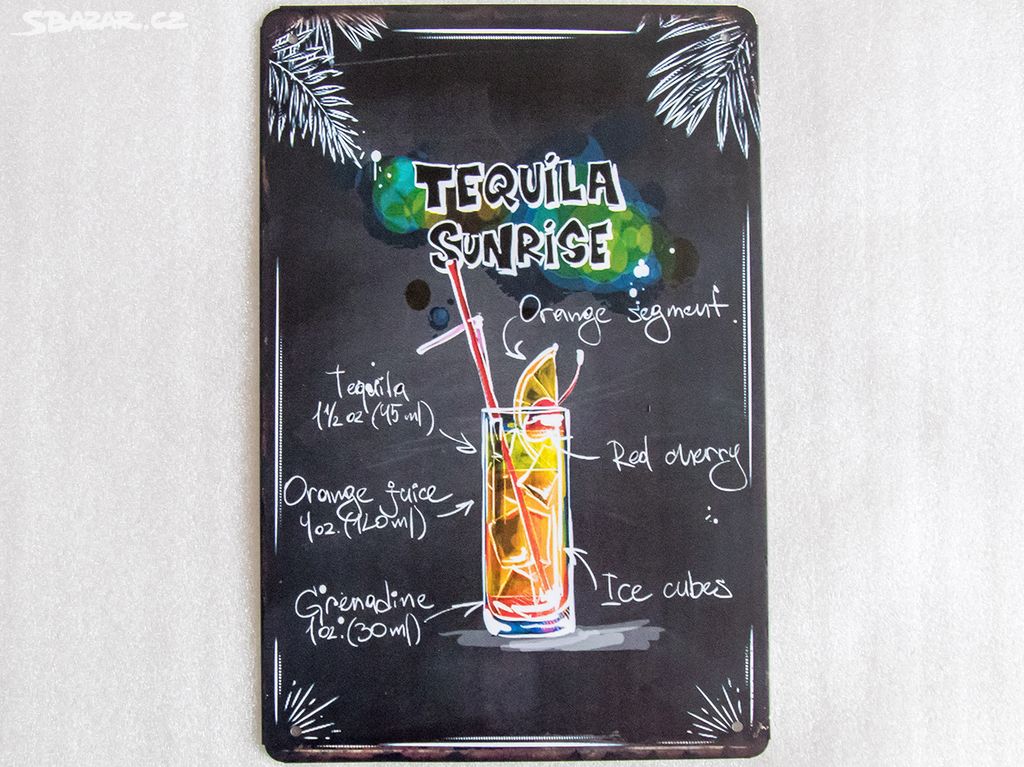 SBAZAR.CZ
TEQUILA
SUNRISE
Orange segment.
Tequila
1 1/2 oz (45 ml)
Red cherry
Orange juice
4 oz. (120 ml)
Ice cubes
Grenadine
1 oz. (30 ml)